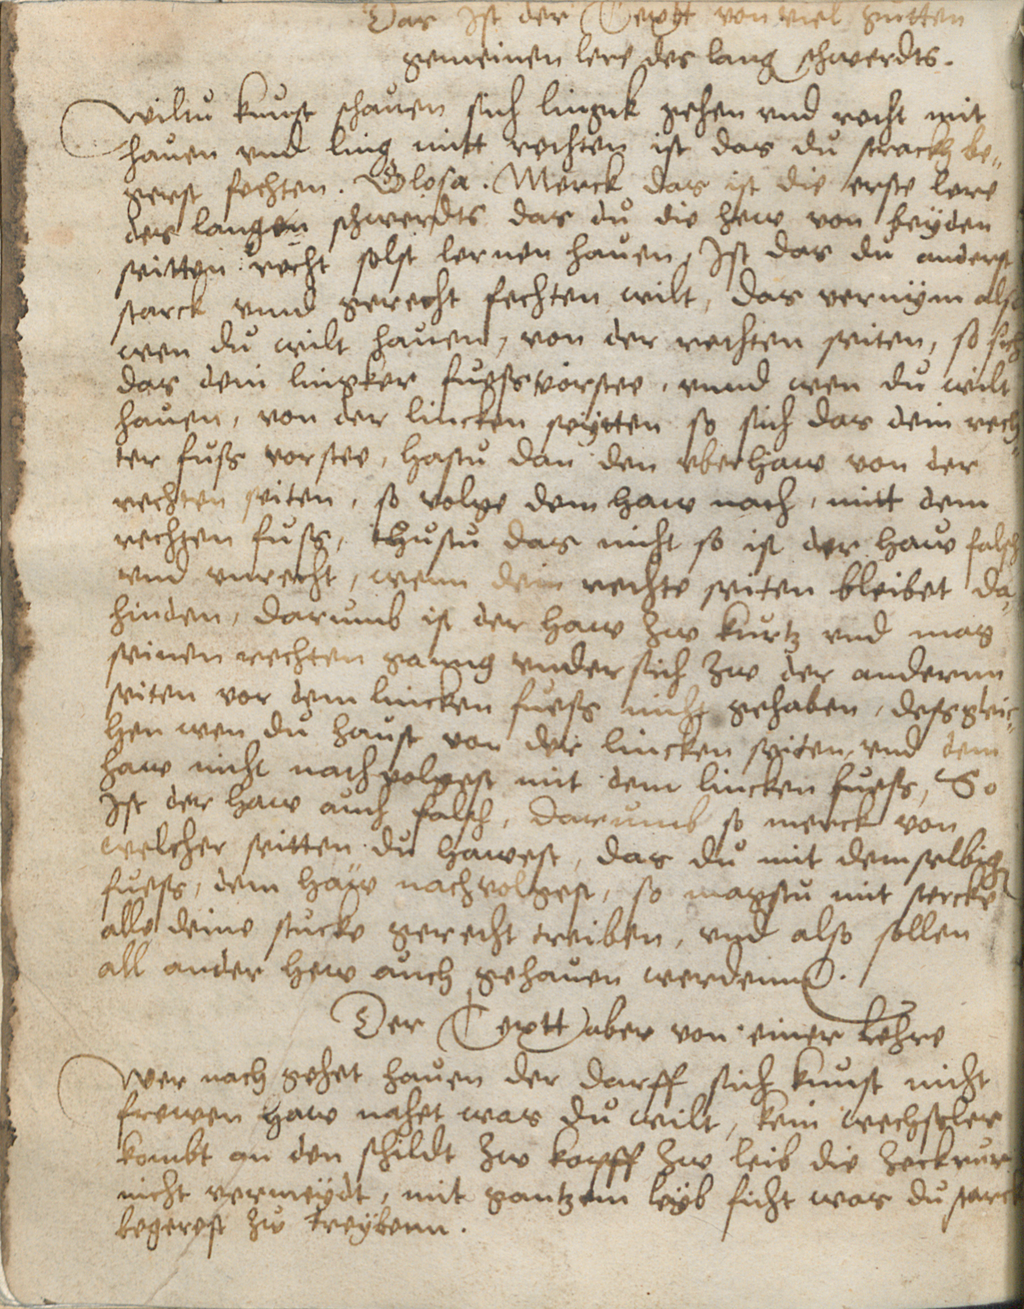 Das Ist der Texxt von viel gutten
gemeinen lere des lang schwerdts.
Wiltu kunst schauen sich linguk gehen vnd recht mit
hauen vnd ling mitt rechten ist das du starck be„
gerst fechten. Glosa. Merck das ist die erste lere
des langen schwerdts das du die hew von beyden
seitten recht solst lernen hauen, Ist das du anderst
starck vnnd gerecht fechten wilt, das vernijm also
wen du wilt hauen, von der rechten seiten, so sich
das dein lingker fuess vorstee, vnnd wen du wilt
hauen, von der lincken seijtten so sich das dein rech„
ter fuss vorstee, hastu dan den vberhaw von der
rechten seiten, so volge dem haw nach, mitt dem
rechten fuss, thustu das nicht so ist der haw falsch
vnd vnrecht, wenn dein rechte seiten bleibet da„
hinden, darumb ist der haw zw kurtz vnd mag
seinen rechten ganng vndersich zw der andernn
seiten vor dem lincken fuess nicht gehaben, dessgleic„
hen wen du haust von der lincken seiten, vnd dem
haw nicht nachvolgest mit dem lincken fuess, So
Ist der haw auch falsch, darumb so merck von
welcher seitten du hawest, das du mit demselbig
fuess, dem haw nachvolgest, so magstu mit stercke
alle deine stucke gerecht treiben, vnd also sollen
all ander hew auch gehauen werdenn.
Der Texxtt aber von einer Lehre
Wer nach gehet hauen der darff sich kunst nicht
frewen haw nahet was du wilt, kein wechsler
kombt an den schildt zw kopff zw leib die zeckrur
nicht vermeydt, mit gantzem leyb ficht was du starck
begerest zw treybenn.